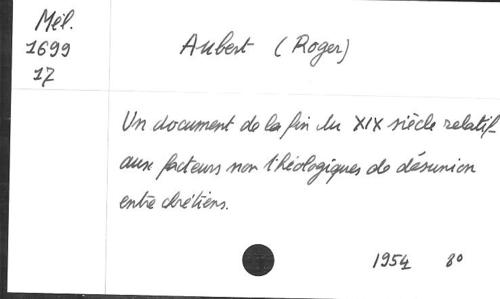 Mél.
1699
17
Aubert (Roger)
Un document de la fin du XIX siècle relatif
aux facteurs non théologiques de désunion
entre chrétiens.
1954 8°